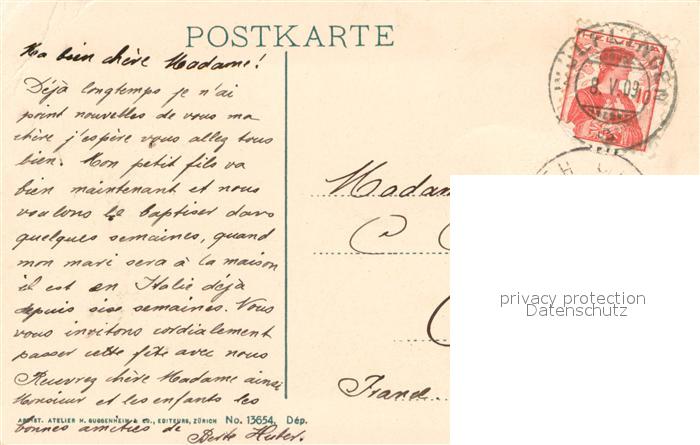 POSTKARTE
Ma bien chère Madame!
Déjà longtemps je n'ai
point nouvelles de vous ma
chère j'espère vous allez tous
bien. Mon petit fils va
bien maintenant et nous
voulons le baptiser dans
quelques semaines, quand
mon mari sera à la maison
il est en Italie déjà
depuis six semaines. Vous
vous invitons cordialement
passer cette fête avec nous
Recevez chère Madame ainsi
Monsieur et les enfants les
bonnes amitiés de Berte Huber.
HELVETIA
8. V. 09
10
Madam
C C
France
privacy protection
Datenschutz
ARTIST. ATELIER H. GUGGENHEIM & CO., EDITEURS, ZÜRICH No. 13654, Dép.